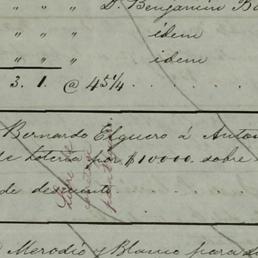 " " " D. Benjamin Ba
" " " idem
" " " idem
3. 1. @ 45 1/4
Bernardo Elguero á Anton
de loteria por $10000. sobre
de descuento.
Merodio y Blanco para